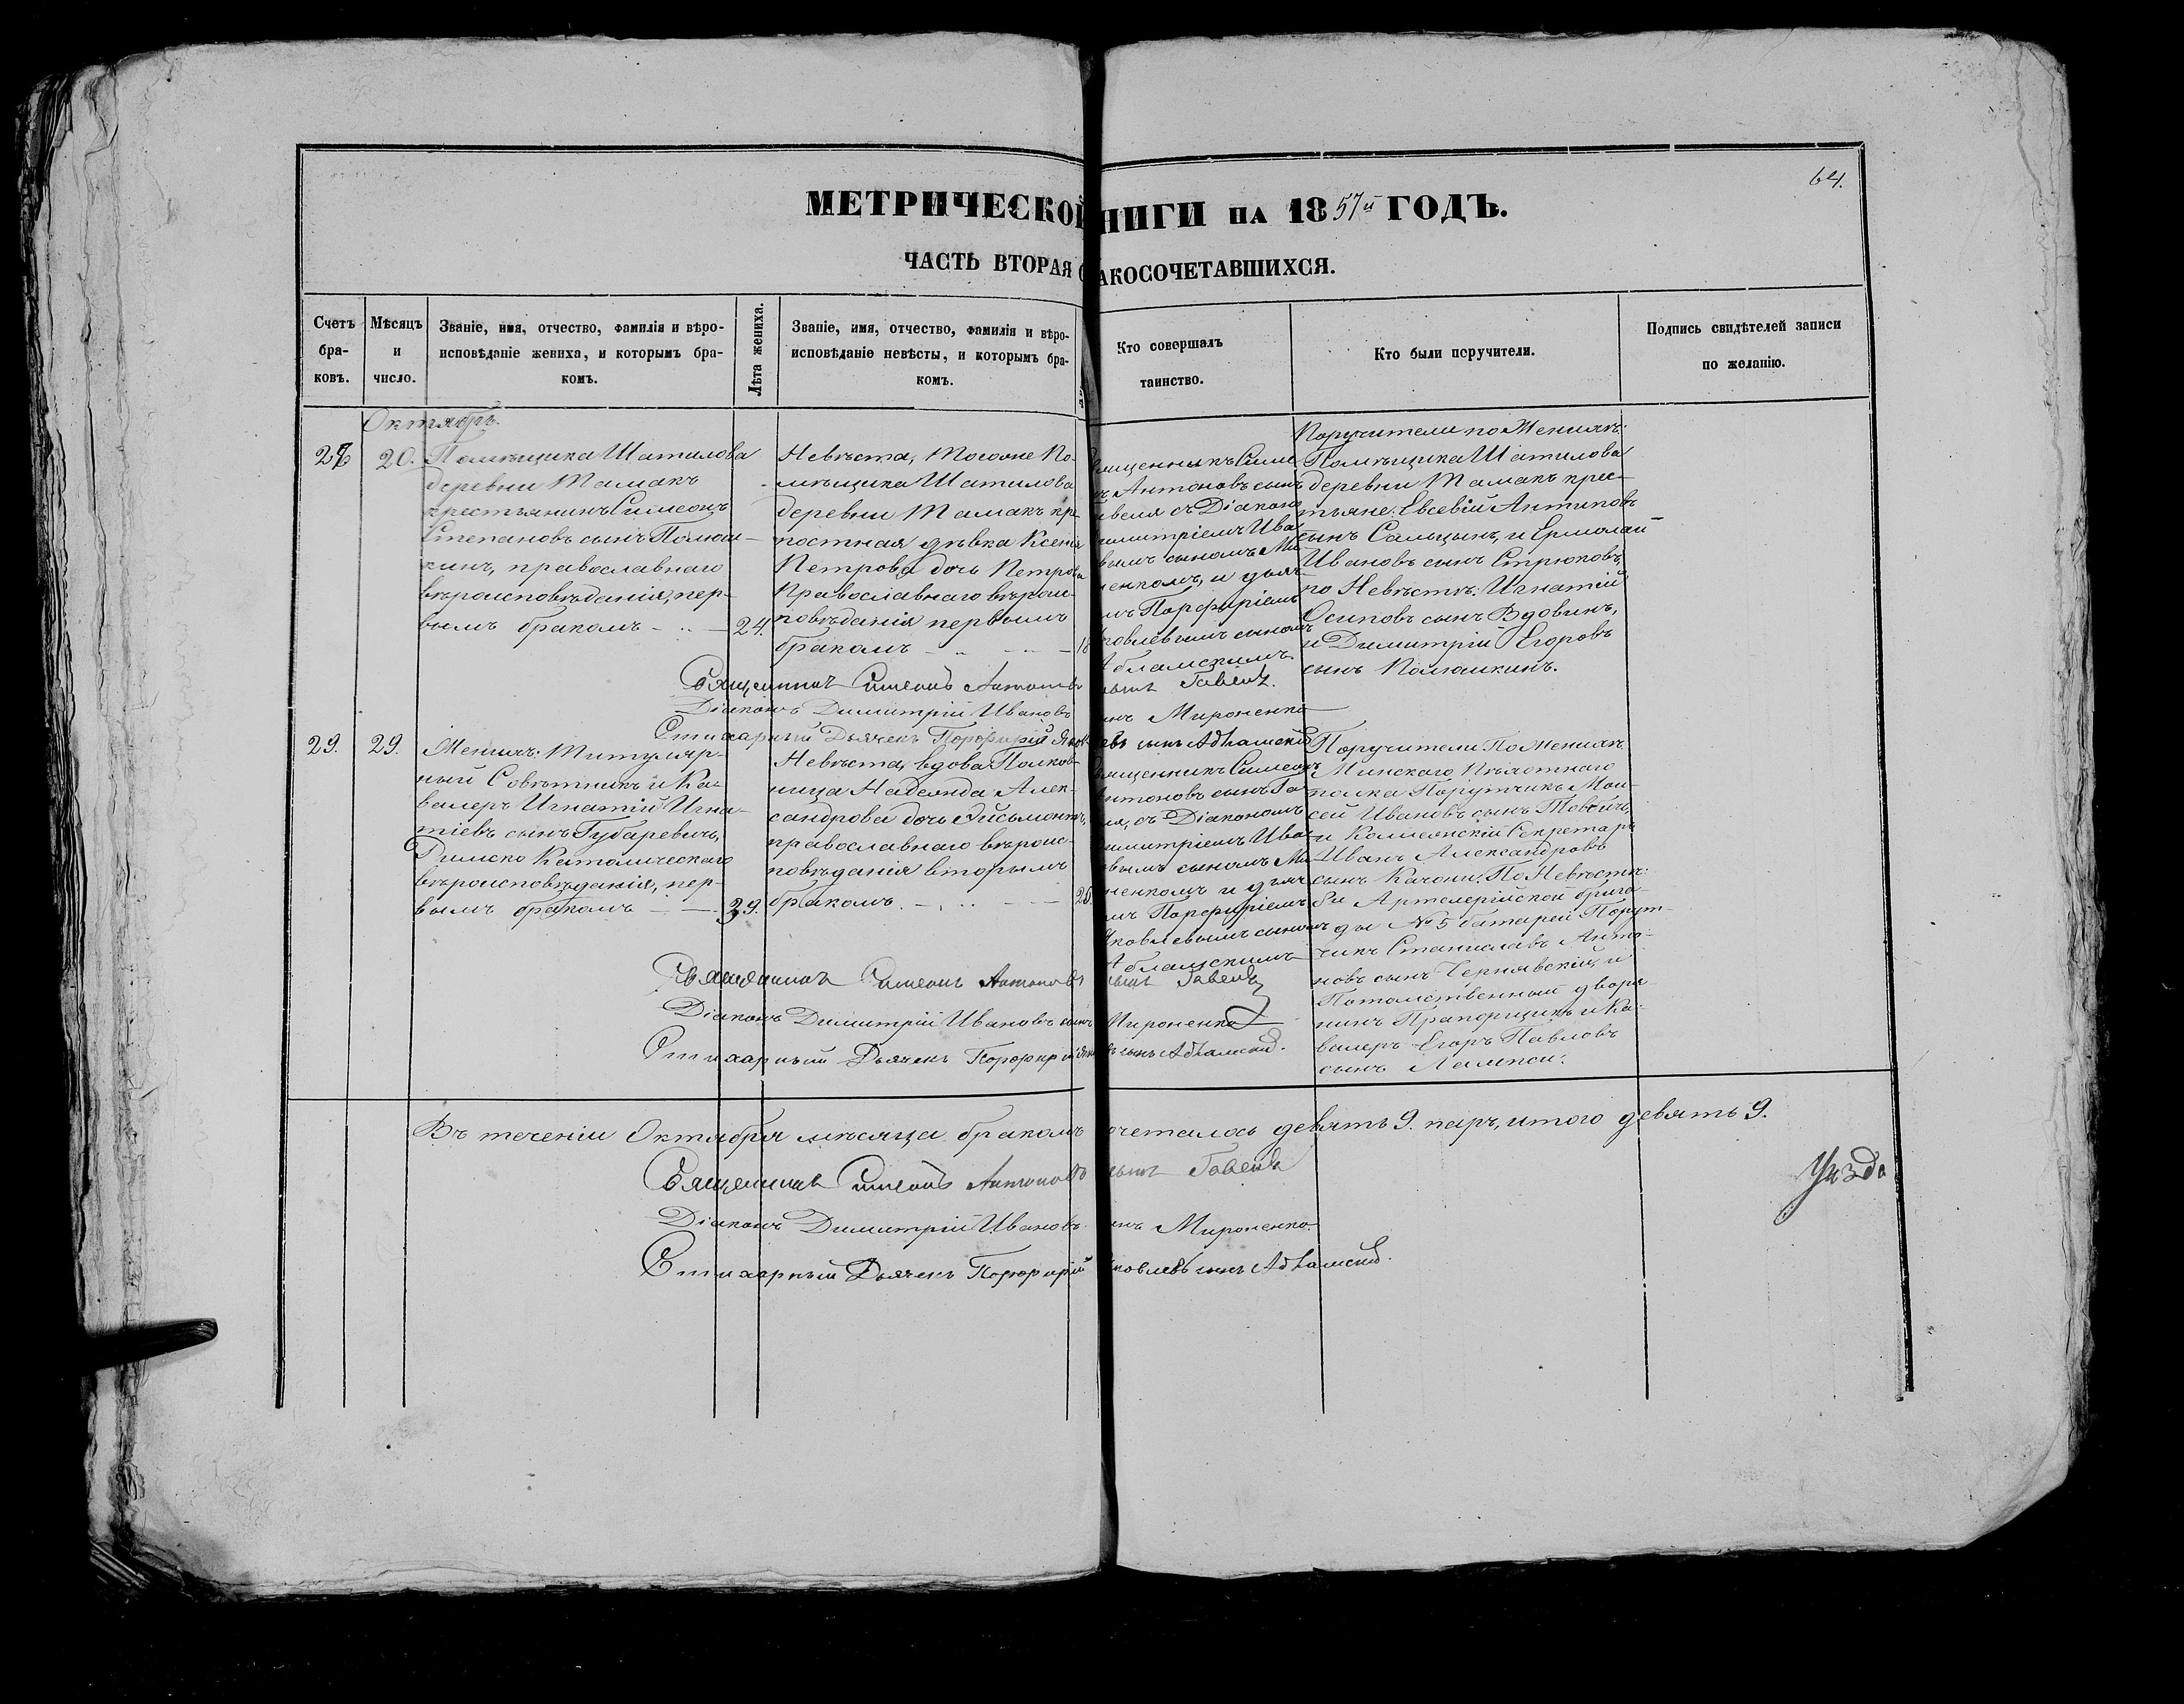 64.
МЕТРИЧЕСКОЙ НИГИ НА 1857й ГОДЪ.
ЧАСТЬ ВТОРАЯ АКОСОЧЕТАВШИХСЯ.
Счетъ бра-ковъ.
Мѣсяцъ и число.
Званіе, имя, отчество, фамилія и вѣро-
исповѣданіе жениха, и которымъ бра-
комъ.
Лѣта жениха.
Званіе, имя, отчество, фамилія и вѣро-
исповѣданіе невѣсты, и которымъ бра-
комъ.
Кто совершалъ
таинство.
Кто были поручители.
Подпись свидѣтелей записи
по желанію.
Октябрь.
28 20.
Помѣщика Шатилова
деревни Тамакъ
крестьянинъ Симеонъ
Степановъ сынъ
кинъ, православнаго
вѣроисповѣданія, пер-
вымъ бракомъ - 24.
Невѣста, Тогоже По-
мѣщика Шатилова
деревни Тамакъ крѣ
постная дѣвка Ксенія
Петрова дочь Петрова
Православнаго вѣроис-
повѣданія первымъ
бракомъ - 18
ященникъ Симе
ъ Антоновъ сынъ
съ Діакономъ
имитріемъ Ива
вымъ сыномъ Ми
ненкомъ, и дьяч
мъ Порфиріемъ
ковлевымъ сыномъ
Абламскимъ.
Поручители по Женихѣ:
Помѣщика Шатилова
деревни Тамакъ крес-
тьяне: Евсевій Антиповъ
сынъ Сальцынъ, и Ермолай
Ивановъ сынъ Стрюковъ,
по Невѣстѣ: Игнатій
Осиповъ сынъ Вдовинъ,
и Димитрій Егоровъ
сынъ
Священникъ Симеонъ Антоновъ сынъ Гавель.
Діаконъ Димитрій Ивановъ инъ Мироненко
Стихарный Дьячекъ Порфирій Яковлевъ сынъ Абламскій
29. 29.
Женихъ: Титуляр-
ный Совѣтникъ и Ка-
валеръ Игнатій Игна-
тіевъ сынъ Губаревичъ,
Римско Католическаго
вѣроисповѣданія, пер-
вымъ бракомъ - 39.
Невѣста, вдова Полков-
ница Надежда Алек-
сандрова дочь Эйсмонтъ,
православнаго вѣроис-
повѣданія вторымъ
бракомъ. - 26.
ященникъ Симеонъ
Антоновъ сынъ Га
съ Діакономъ
имитріемъ Ива
овымъ сыномъ Ми
ненкомъ и дьяч
мъ Порфиріемъ
Яковлевымъ сыномъ
Абламскимъ
Поручители: По Женихѣ
Минскаго Пѣхотнаго
полка Порутчикъ Мои-
сей Ивановъ сынъ
и Коллежскій Секретарь
Иванъ Александровъ
сынъ Качони. По Невѣстѣ:
8й Артилерійской брига-
ды №5 батареи Порут-
чикъ Станиславъ Анто-
новъ сынъ Чернявскій, и
Потомственный дворя-
нинъ Прапорщикъ и Ка-
валеръ Егоръ Павловъ
сынъ Лампси.
Священникъ Симеонъ Антоновъ сынъ Гавель
Діаконъ Димитрій Ивановъ сынъ Мироненко
Стихарный Дьячекъ Порфирій Яков въ сынъ Абламскій.
Въ теченіи Октября мѣсяца бракомъ очеталось девять 9. паръ, итого девять 9.
Священникъ Симеонъ Антоновъ сынъ Гавель
Діаконъ Димитрій Ивановъ инъ Мироненко.
Стихарный Дьячекъ Порфирій ковлевъ сынъ Абламскій.
Уѣзда